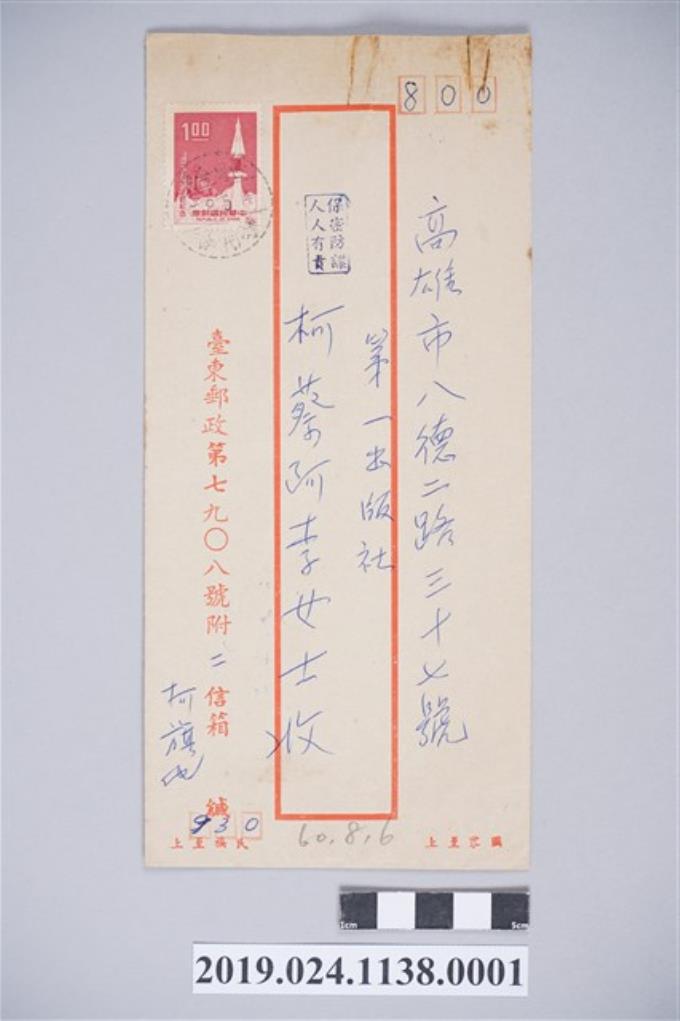 800
高雄市八德二路三十七號
第一出版社
保密防諜
人人有責
柯蔡阿李女士收
1.00
中華民國郵票
臺東郵政第七九〇八號附二信箱 緘
柯旗化
930
國家至上
民族至上
60.8.6
1cm
5cm
2019.024.1138.0001